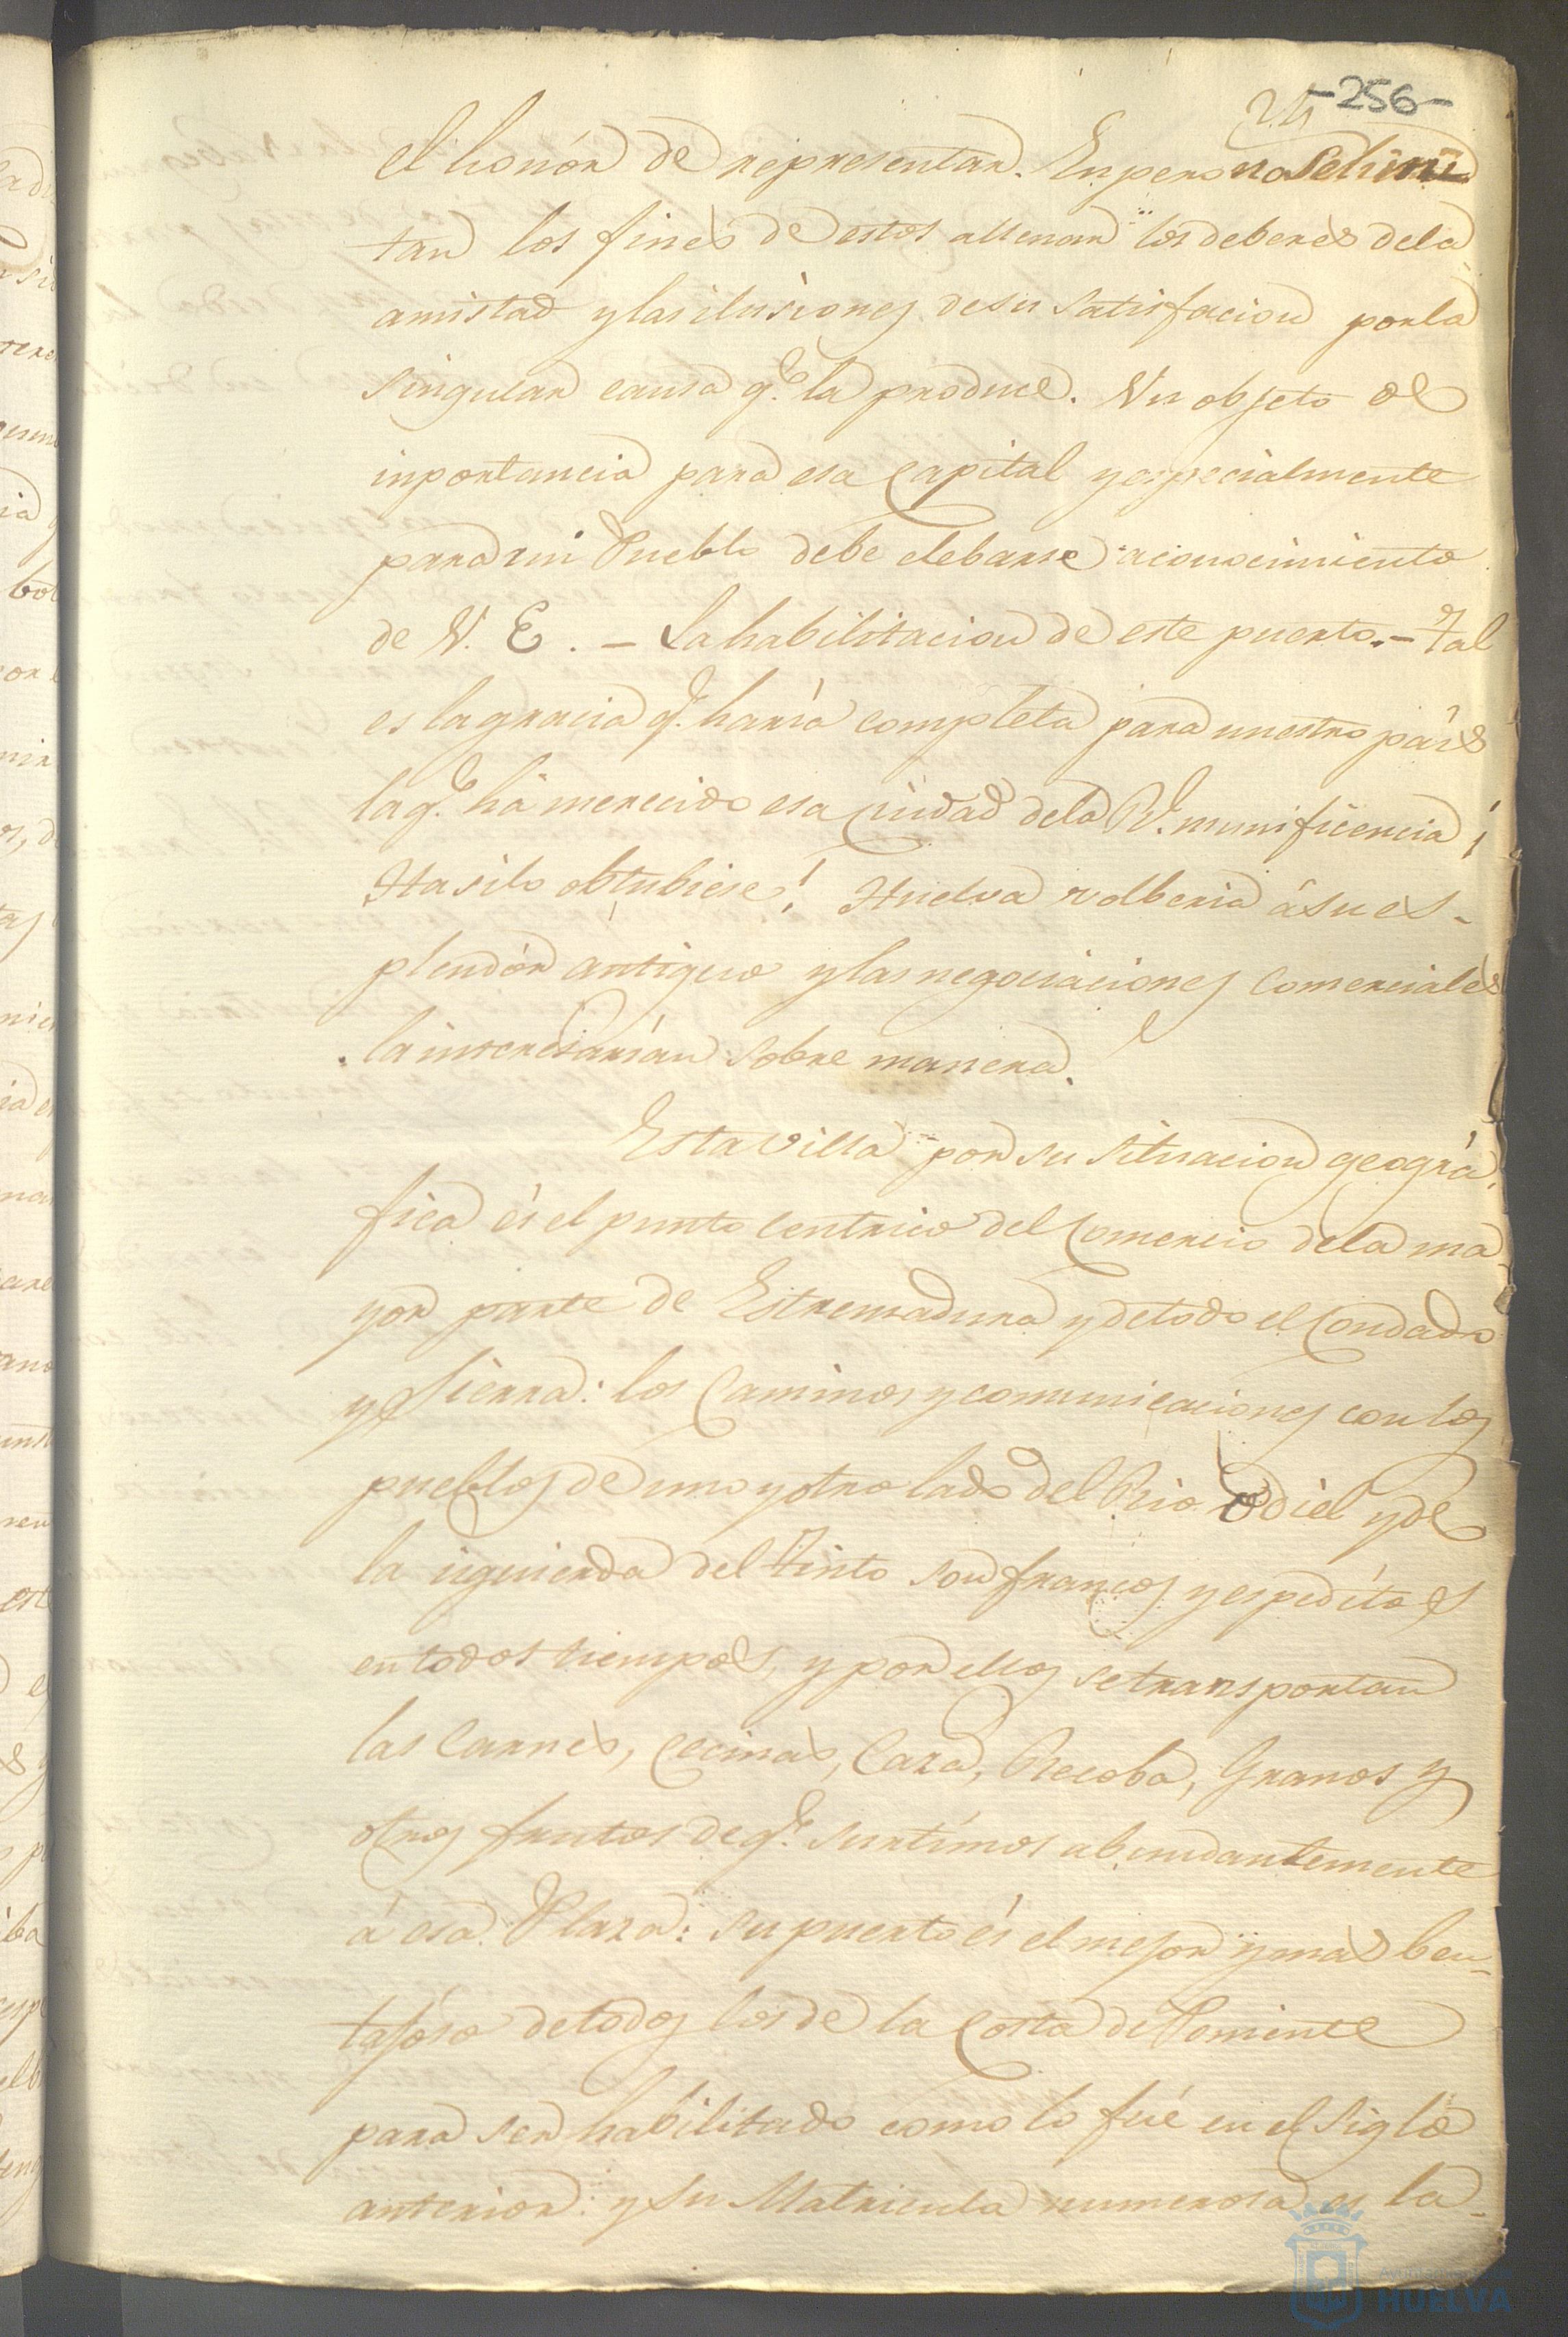 -256-
el honór de representar. Enpero no se limi
tan los fines de estos allenar los deberes dela
amistad y las ilusiones desu satisfacion por la
singular causa q.e la produce. Un objeto de
inportancia para esa Capital y especialmente
para mi Pueblo debe elebarse aconocimiento
de V. E. – La habilitacion de este puerto. – Tal
es la gracia q.e haria completa para nuestro pais
la q.e há merecido esa Ciudad dela R.l munificencia ¡
Ha silo obtubiese! Huelva volberia ásu es-
plendór antiguo y las negociaciones Comerciales
la interesarían sobre manera.
Esta villa por su situacion geográ
fica és el punto centrico del Comercio dela ma
yor parte de Estremadura y detodo el Condado
y Sierra: los Caminos y comunicaciones con los
pueblos de uno y otro lado del Rio Odiel y de
la izquierda del Tinto son francos y espeditos
entodos tiempos, y por ellos se transportan
las Carnes, Cecinas, Caza, Recoba, Granos y
otros frutos de q.e surtimos abundantemente
á esa Plaza: su puerto és el mejor y mas ben-
tajoso detodos los de la Costa de Poniente
para ser habilitado como lo fué en el siglo
anterior: y su Matricula numerosa es la
Ayuntamiento de
HUELVA